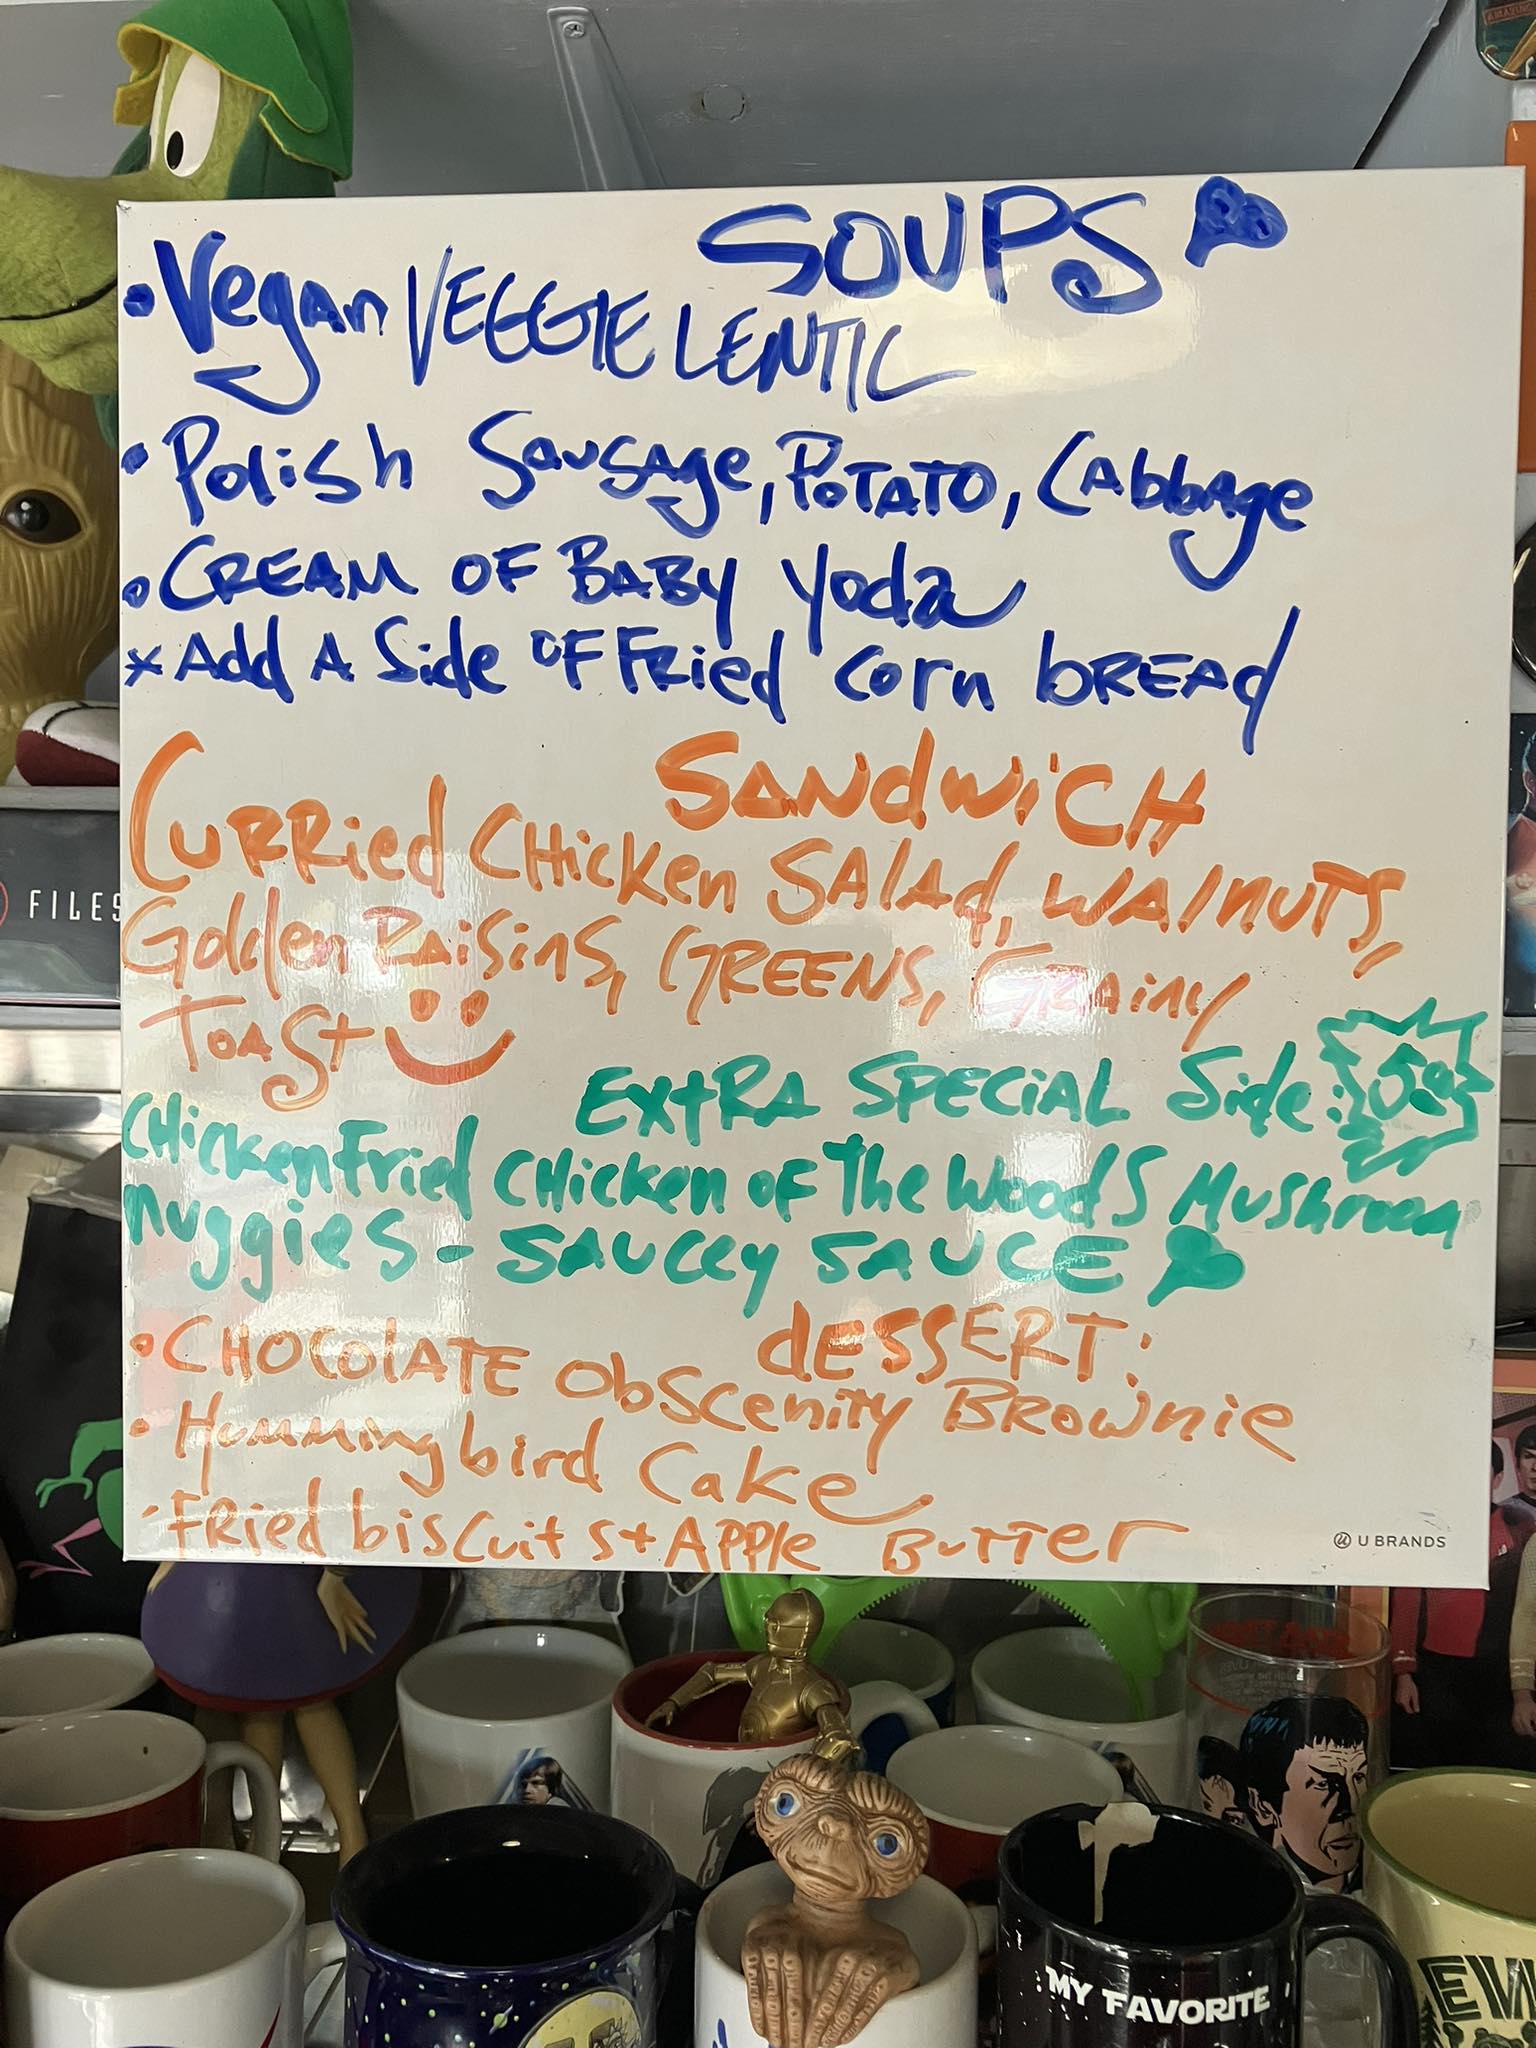 SOUPS
• Vegan VEGGIE LENTIL
• Polish Sausage, POTATO, Cabbage
• CREAM OF BABY Yoda
* Add A Side OF FRied corn bREAd
SANdWiCH
CURRied CHicken SAlAd, WAlnUTS,
Golden RaiSinS, GREENS, GRAiny
TOAST
EXtRA SPECiAL Side: 5.00
CHicken Fried CHicken OF The WoodS MUShroom
nuggieS - SAUCEy SAUCE
dESSERT:
• CHOCOlATE ObScenity BROWnie
• Hummingbird Cake
• FRied biscuits + APPle BuTTer
U BRANDS
FILES
MY FAVORITE